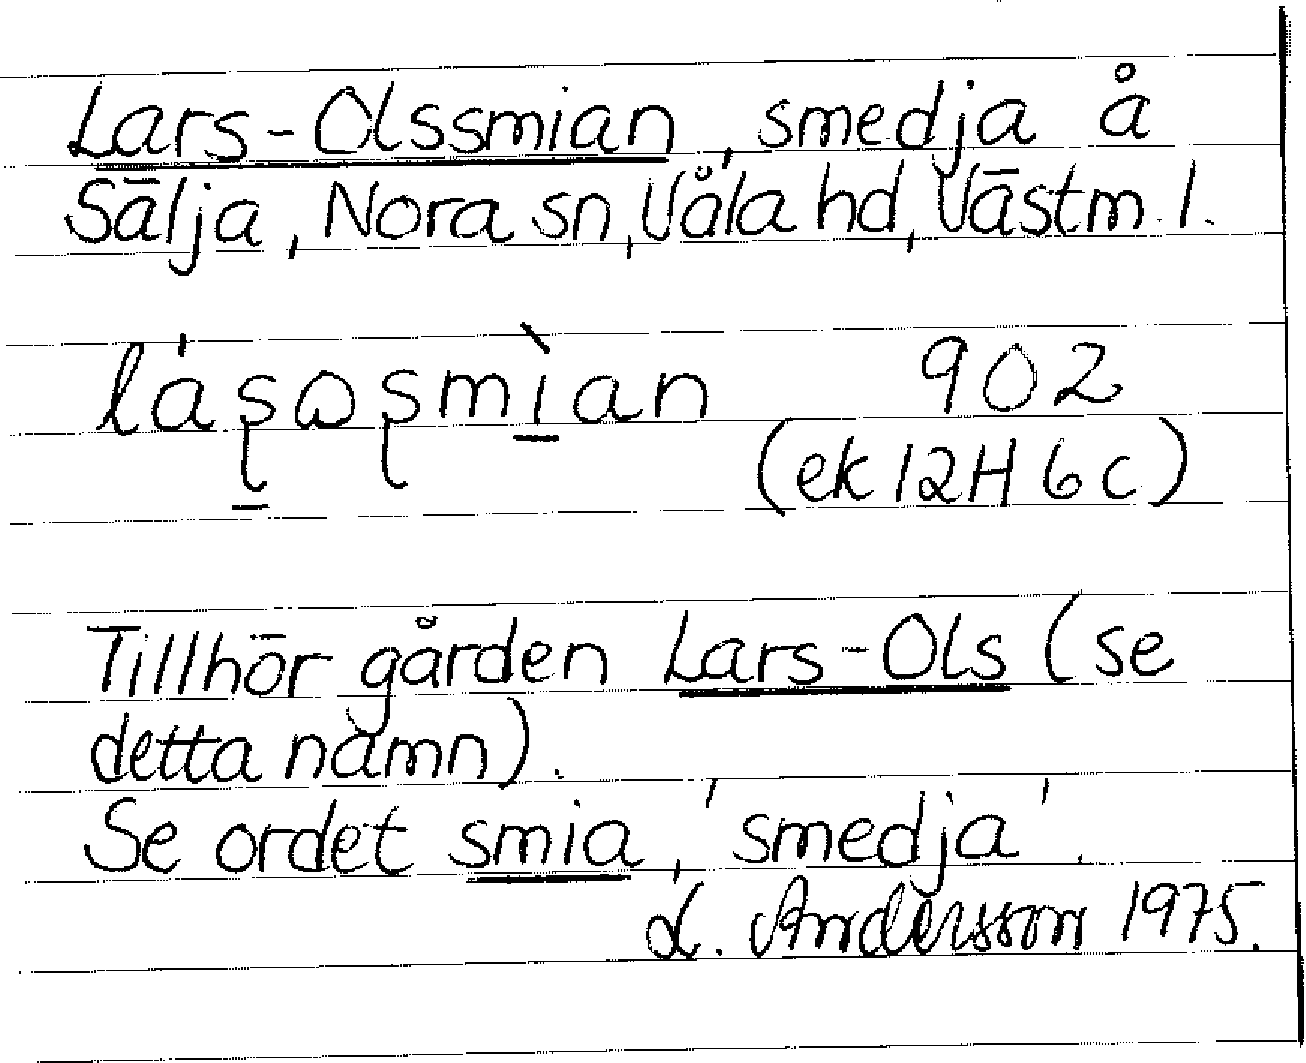 Lars-Olssmian, smedja å
Sälja, Nora sn, Våla hd, Västm l.
lásosmìan 902
(ek 12H 6c)
Tillhör gården Lars-Ols (se
detta namn).
Se ordet smia, 'smedja'.
L. Andersson 1975.